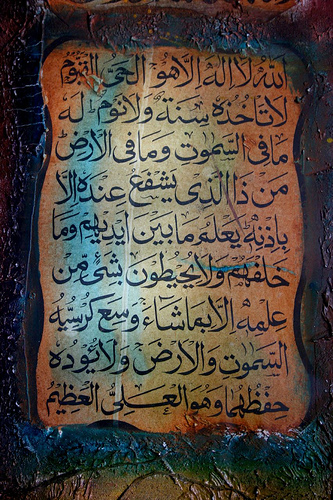 اللّٰهُ لَا اِلٰهَ اِلَّا هُوَ الْحَیُّ الْقَیُّوْمُ
لَا تَاْخُذُهٗ سِنَةٌ وَّلَا نَوْمٌ لَهٗ
مَا فِی السَّمٰوٰتِ وَمَا فِی الْاَرْضِ
مَنْ ذَا الَّذِیْ یَشْفَعُ عِنْدَهٗ اِلَّا
بِاِذْنِهٖ یَعْلَمُ مَا بَیْنَ اَیْدِیْهِمْ وَمَا
خَلْفَهُمْ وَلَا یُحِیْطُوْنَ بِشَیْءٍ مِّنْ
عِلْمِهٖ اِلَّا بِمَا شَآءَ وَسِعَ كُرْسِیُّهُ
السَّمٰوٰتِ وَالْاَرْضَ وَلَا یَئُوْدُهٗ
حِفْظُهُمَا وَهُوَ الْعَلِیُّ الْعَظِیْمُ